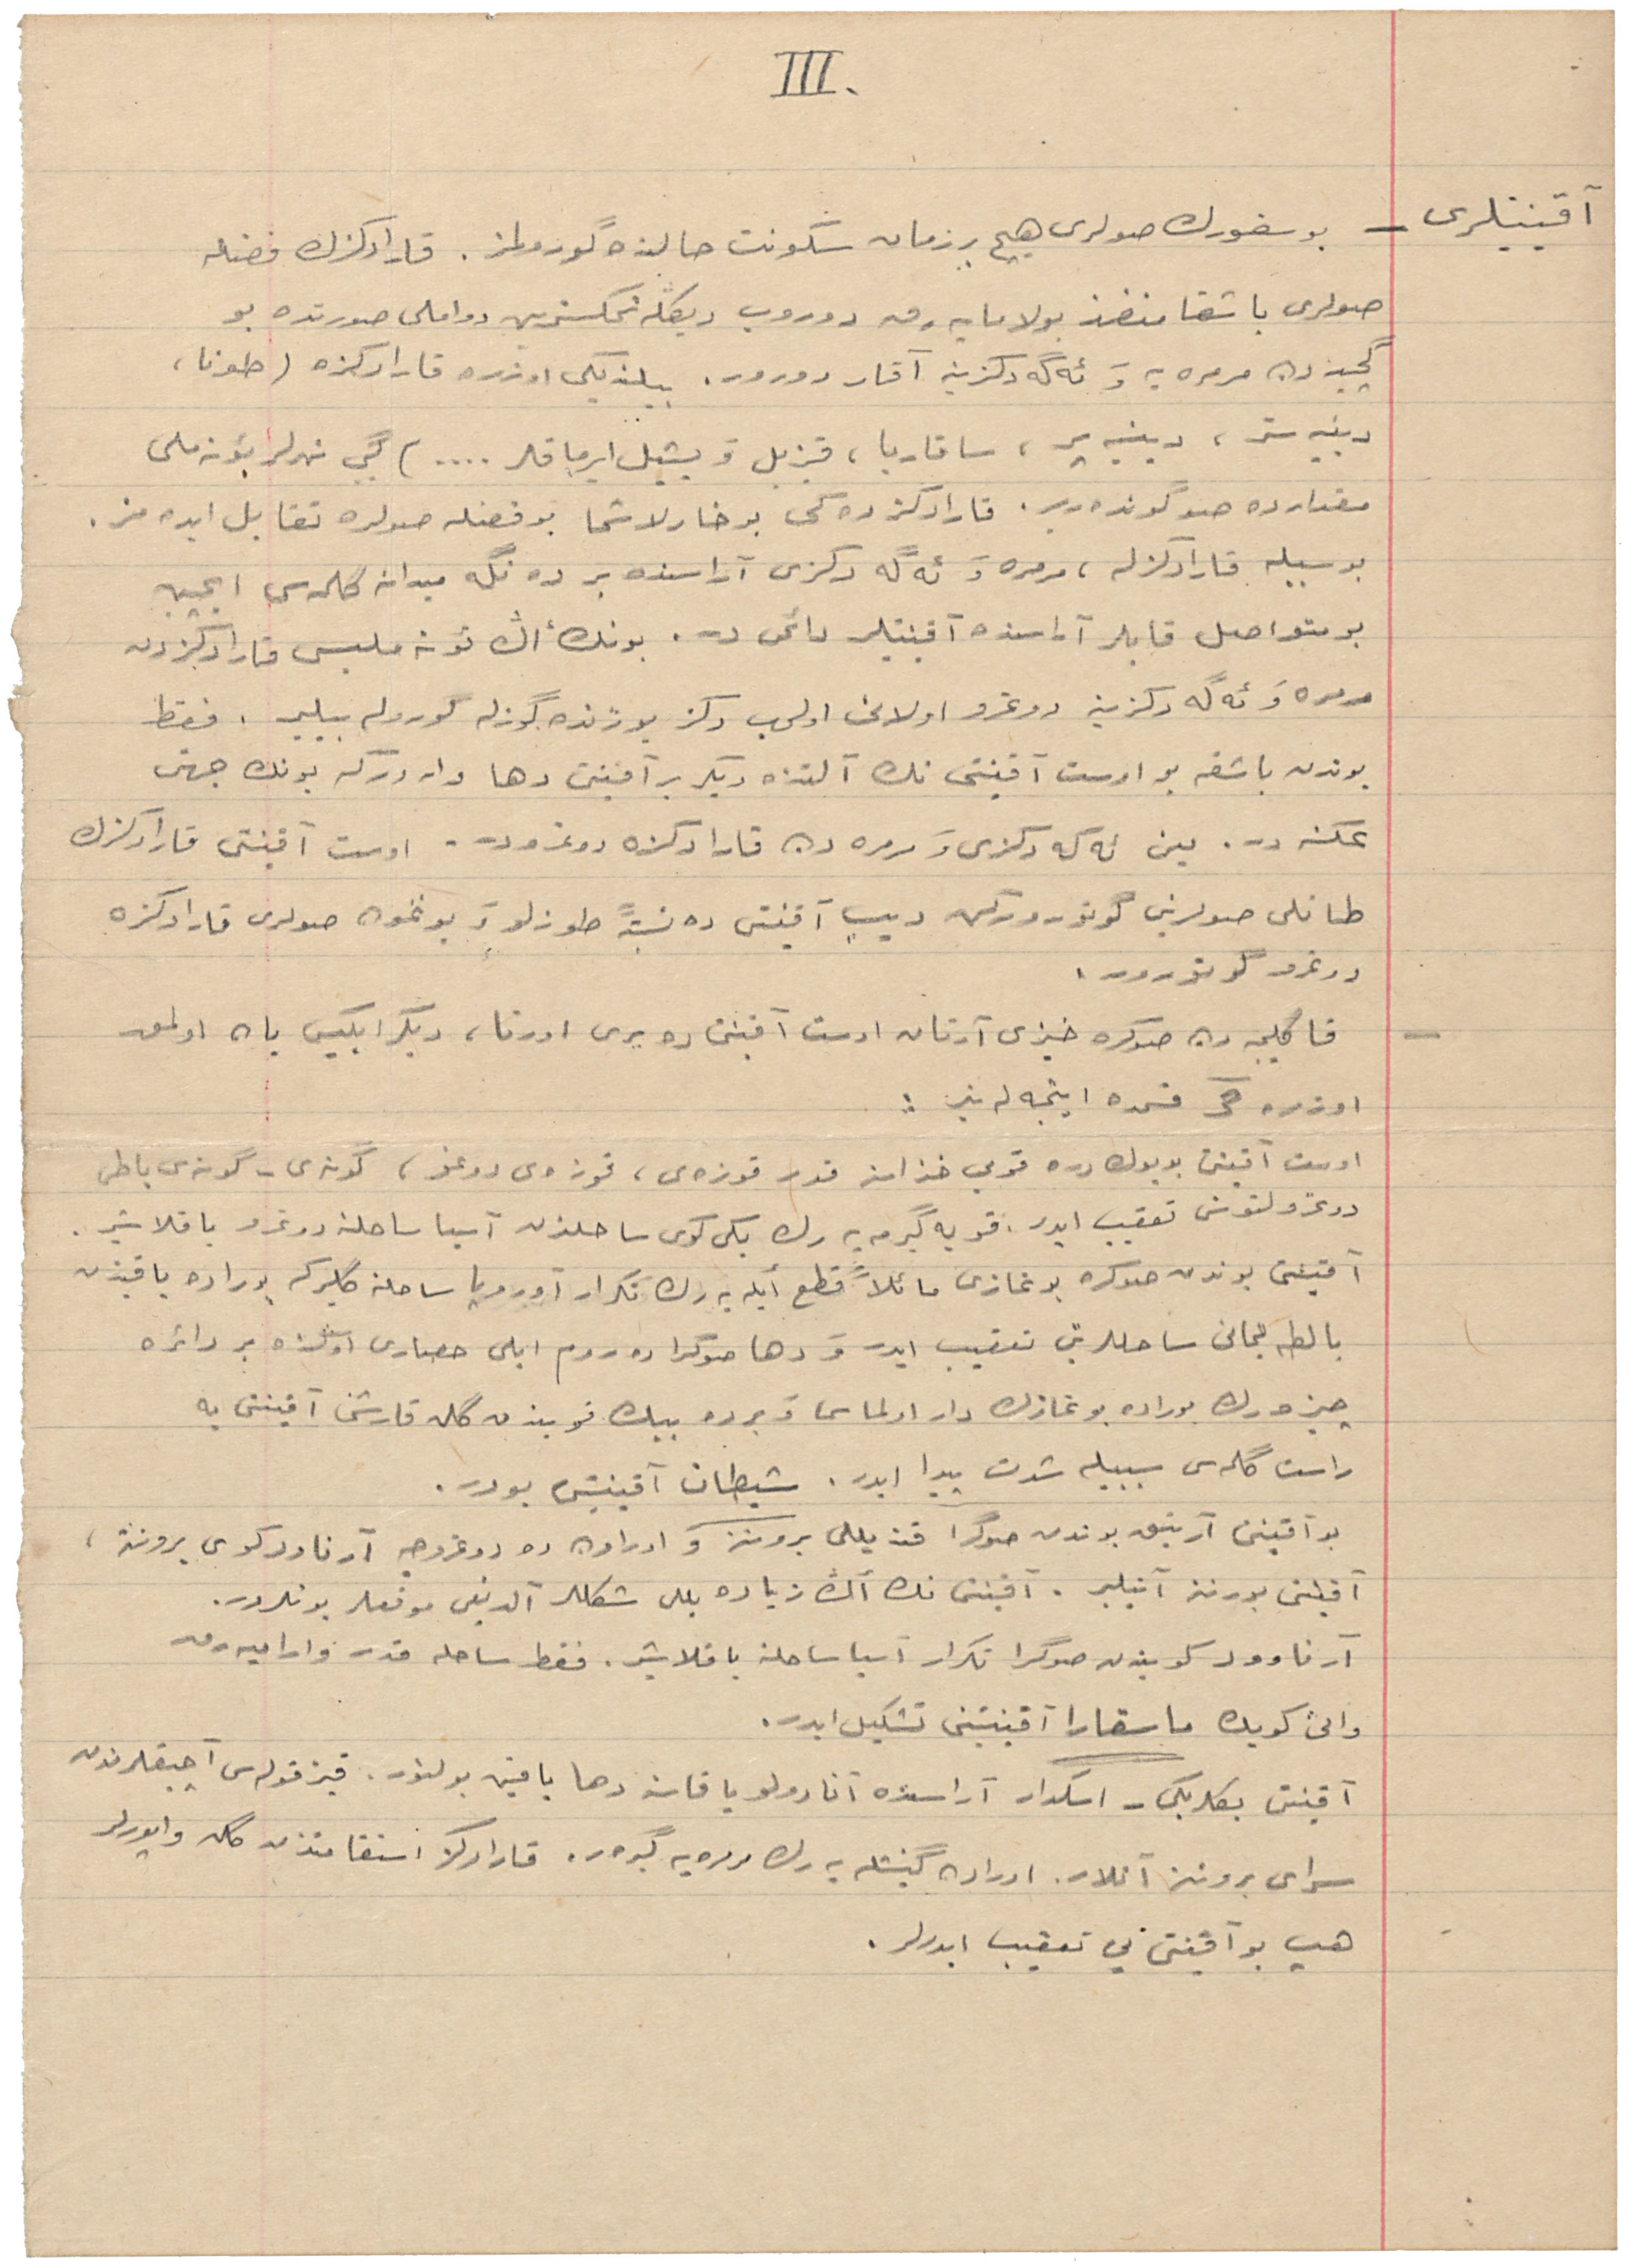 III.
آقینتیلری — بوسفورك صولری هیچ بر زمان سكونت حالنده گورولمز. قارا دكزك فضله
صولری باشقا منفذ بولامایه رق دوروب دیڭله نمكسزین دواملی صورتده بو
گچیددن مرمره یه وَ ئه گه دكزینه آقار دورور. بیلندیگی اوزره قارا دكزه (طونا،
دنیه ستر، دینیه پر، ساقاریا، قیزیل وَ یشیل ایرماقلر ....) گبی نهرلر ئونه ملی
مقدارده صو گونده ریر. قارا دكزده كی بوخارلاشما بو فضله صولره تقابل ایده مز.
بو سببله قارا دكزله، مرمره وَ ئه گه دكزی آراسنده بر ده نگه میدانه گلمه سی ایچین
بو متواصل قابلر آراسنده آقینتیلر دائمی در. بونك أڭ ئونه ملیسی قارا دكزدن
مرمره وَ ئه گه دكزینه دوغرو اولانی اولوب دكز یوزنده گوزله گوروله بیلیر. فقط
بوندن باشقه بو اوست آقینتی نك آلتنده دیگر بر آقینتی دها واردركه بونك جهتی
عكسنه در. یعنی ئه گه دكزی وَ مرمره دن قارا دكزه دوغرودر. اوست آقینتی قارا دكزك
طاتلی صولرینی گوتوروركن دیب آقینتی ده نسبةً طوزلو وَ یوغون صولری قارا دكزه
دوغرو گوتورور.
— قاگلیجه دن صوكره خیزی آرتان اوست آقینتی ده بری اورتا، دیگر ایكیسی یان اولمق
اوزره اوچ قسمده اینجه له نیر :
اوست آقینتی بویوك دره قویی خذاسنه قدر قوزه ی، قوزه ی دوغو، گونه ی ـ گونه ی باطی
دوغرولتوسنی تعقیب ایدر. قویه گیرمه یه رك یكی كوی ساحلندن آسیا ساحلنه دوغرو یاقلاشیر.
آقینتی بوندن صوكره بوغازی مائلاً قطع ایله یه رك تكرار آوروپا ساحلنه گلیركه بوراده یاقیندن
بالطه لیمانی ساحللرینی تعقیب ایدر وَ دها صوكرا ده روم ایلی حصاری اوڭنده بر دائره
چیزه رك بوراده بوغازك دار اولماسی وَ برده ببك قویندن گلن قارشی آقینتی یه
راست گلمه سی سببیله شدت پیدا ایدر. شیطان آقینتیسی بودر.
بو آقینتی آریتق بوندن صوڭرا قندیللی بروننه وَ اورادن ده دوغروجه آرناودكوی بروننه،
آقینتی بورننه آتیلیر. آقینتی نك أڭ زیاده بللی شكللر آلدیغی موقعلر بونلردر.
آرناوود كویندن صوڭرا تكرار آسیا ساحلنه یاقلاشیر. فقط ساحله قدر وارامیه رق
وانی كویك ماسقارا آقینتیسنی تشكیل ایدر.
آقینتی بكلربكی ـ اسكدار آراسنده آنادولو یاقاسنه دها یاقین بولنور. قیز قوله سی آچیقلرندن
سرای بروننه آتلار. اورادن گنیشله یه رك مرمره یه گیرر. قارا دكز استقامتندن گلن واپورلر
هپ بو آقینتی یی تعقیب ایدرلر.